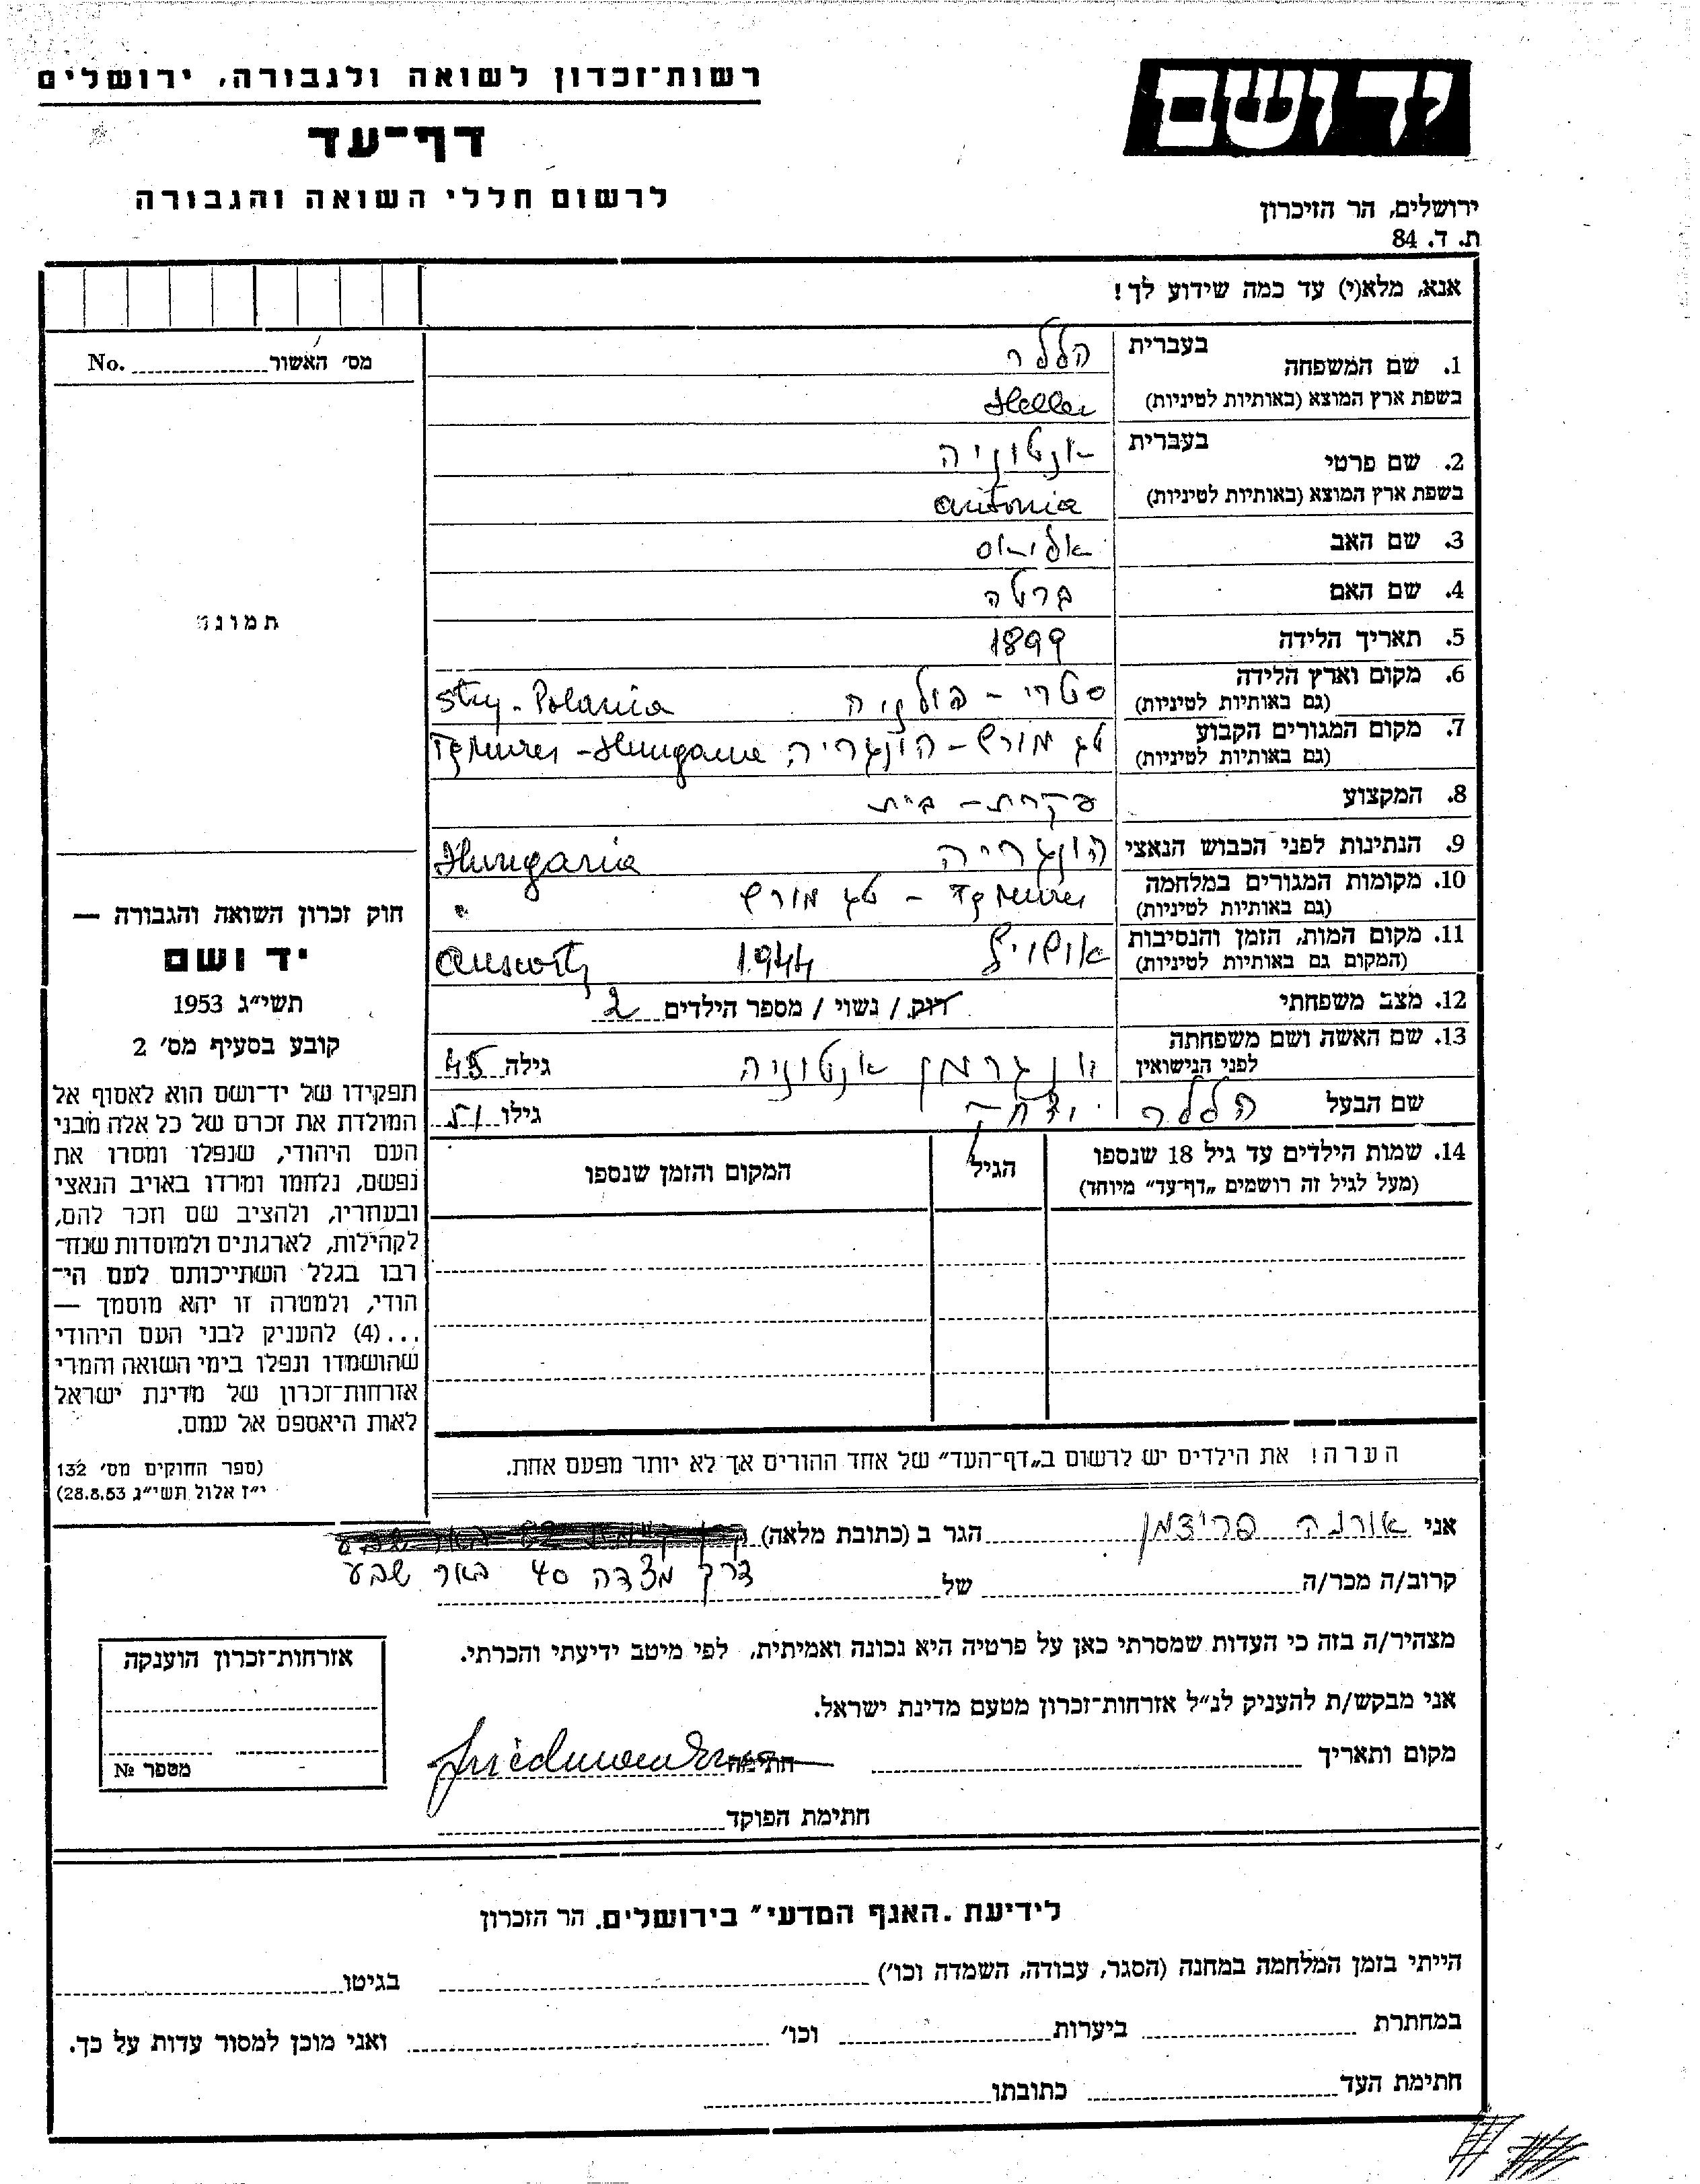 רשות־זכרון לשואה ולגבורה, ירושלים
דף־עד
לרשום חללי השואה והגבורה
יד ושם
ירושלים, הר הזיכרון
ת. ד. 84
אנא, מלא(י) עד כמה שידוע לך!
מס׳ האשור No.
תמונה
בעברית
1. שם המשפחה הללר
בשפת ארץ המוצא (באותיות לטיניות) Heller
בעברית
2. שם פרטי אנטוניה
בשפת ארץ המוצא (באותיות לטיניות) Antonia
3. שם האב אליאס
4. שם האם ברטה
5. תאריך הלידה 1899
6. מקום וארץ הלידה סטרי - פולניה Stry - Polania
(גם באותיות לטיניות)
7. מקום המגורים הקבוע טג מורש - הונגריה Tg Mures - Hungarie
(גם באותיות לטיניות)
8. המקצוע עקרת - בית
9. הנתינות לפני הכבוש הנאצי הונגריה Hungaria
10. מקומות המגורים במלחמה Tg Mures - טג מורש "
(גם באותיות לטיניות)
11. מקום המות, הזמן והנסיבות אושויץ 1944 Auswitz
(המקום גם באותיות לטיניות)
12. מצב משפחתי רווק / נשוי / מספר הילדים 2
13. שם האשה ושם משפחתה
לפני הנישואין אנטוניה גילה 45
שם הבעל הללר גילו 51
14. שמות הילדים עד גיל 18 שנספו הגיל המקום והזמן שנספו
(מעל לגיל זה רושמים „דף־עד״ מיוחד)
חוק זכרון השואה והגבורה —
יד ושם
תשי״ג 1953
קובע בסעיף מס׳ 2
תפקידו של יד־ושם הוא לאסוף אל
המולדת את זכרם של כל אלה מבני
העם היהודי, שנפלו ומסרו את
נפשם, נלחמו ומרדו באויב הנאצי
ובעוזריו, ולהציב שם וזכר להם,
לקהילות, לארגונים ולמוסדות שנח־
רבו בגלל השתייכותם לעם הי־
הודי, ולמטרה זו יהא מוסמך —
...(4) להעניק לבני העם היהודי
שהושמדו ונפלו בימי השואה והמרי
אזרחות־זכרון של מדינת ישראל
לאות היאספם אל עמם.
(ספר החוקים מס׳ 132
י״ז אלול תשי״ג 28.8.53)
הערה! את הילדים יש לרשום ב„דף־העד״ של אחד ההורים אך לא יותר מפעם אחת.
אני אורנה פרידמן הגר ב (כתובת מלאה)
דרך מצדה 40 באר שבע
קרוב/ה מכר/ה של
מצהיר/ה בזה כי העדות שמסרתי כאן על פרטיה היא נכונה ואמיתית, לפי מיטב ידיעתי והכרתי.
אני מבקש/ת להעניק לנ״ל אזרחות־זכרון מטעם מדינת ישראל.
מקום ותאריך חתימה
חתימת הפוקד
אזרחות־זכרון הוענקה
מספר №
לידיעת „האגף המדעי״ בירושלים. הר הזכרון
הייתי בזמן המלחמה במחנה (הסגר, עבודה, השמדה וכו׳) בגיטו
במחתרת ביערות וכו׳ ואני מוכן למסור עדות על כך.
חתימת העד כתובתו